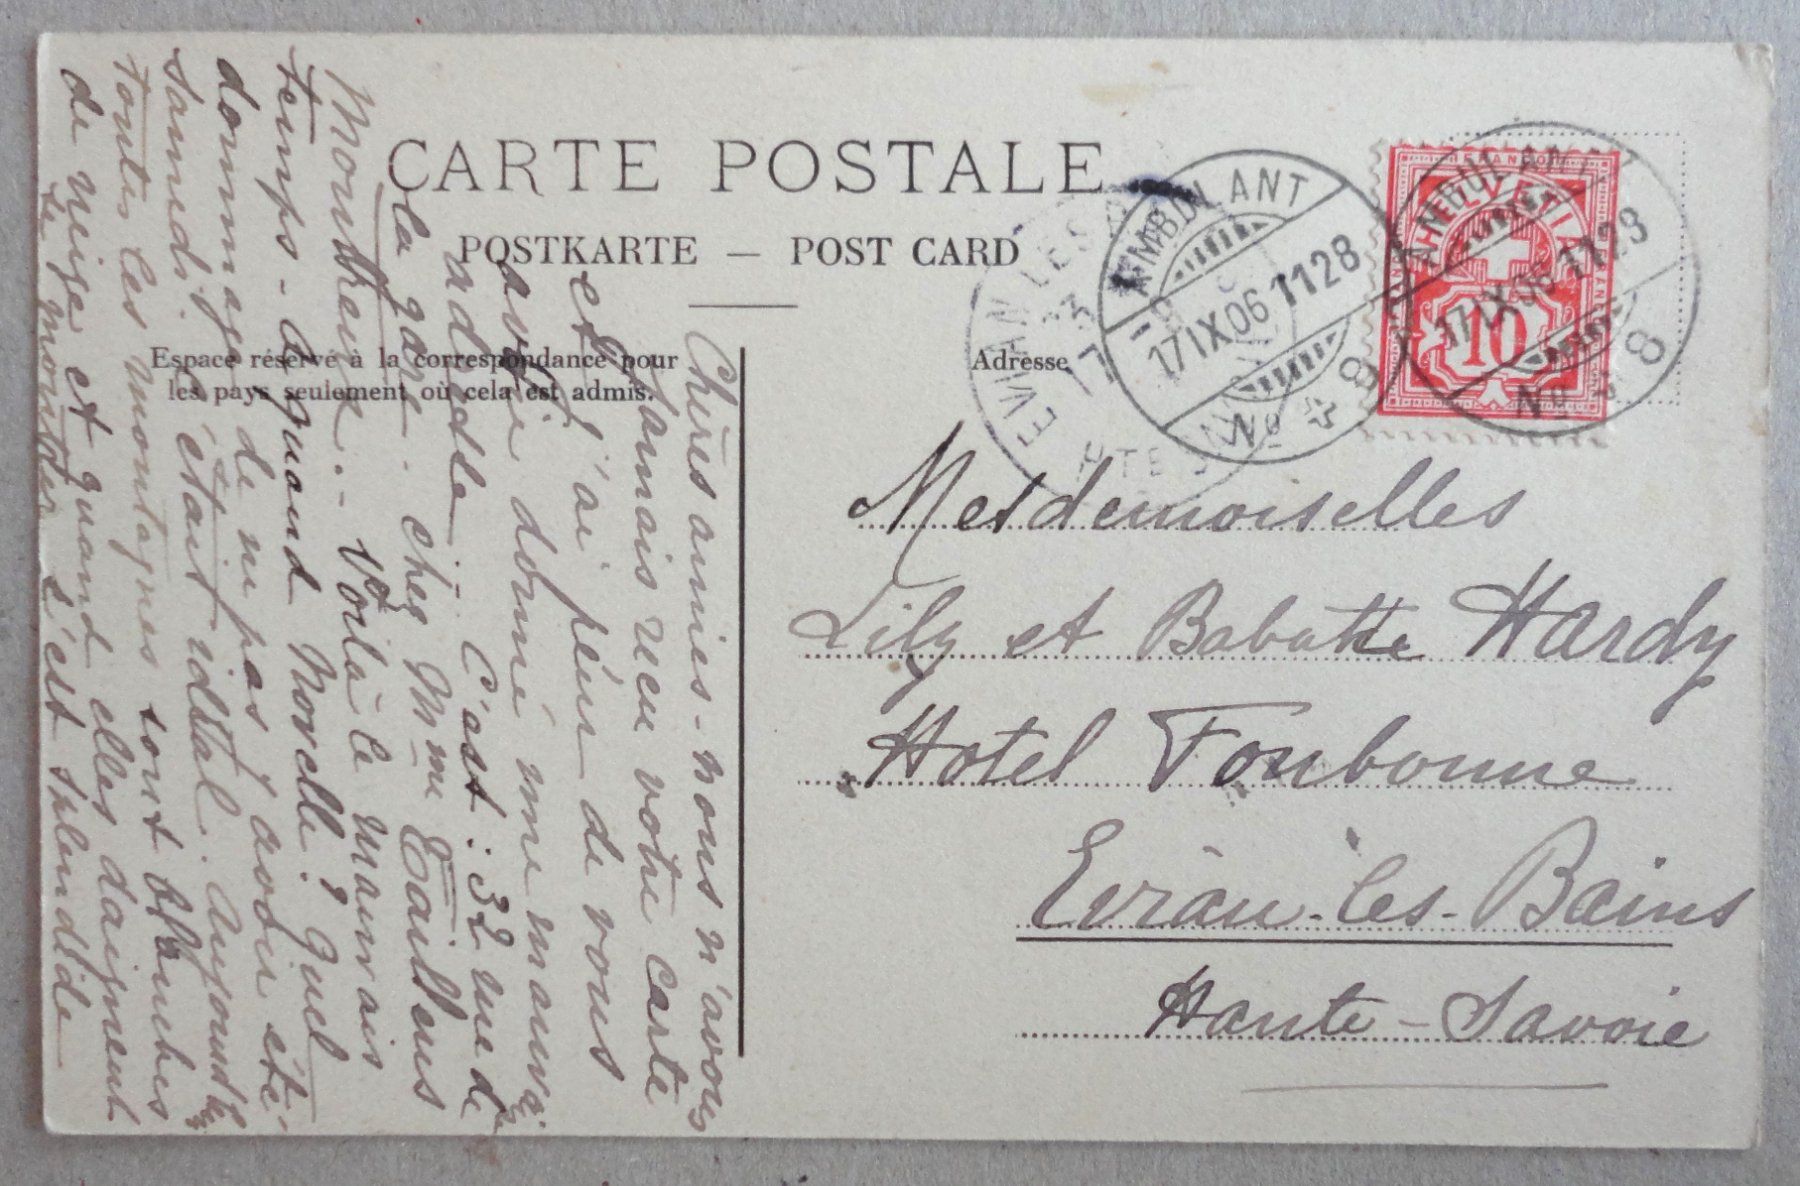 CARTE POSTALE
POSTKARTE — POST CARD
Espace réservé à la correspondance pour
les pays seulement où cela est admis.
Adresse
AMBULANT
17 IX.06 1128
No 8
AMBULANT
17 IX.06 1128
No 8
EVIAN LES B
HTE SAV
HELVETIA
FRANCO
10
Mesdemoiselles
Lily et Babette Hardy
Hotel Fonbonne
Evian-les-Bains
Haute-Savoie
Chères amies - nous n'avons
jamais reçu votre carte
et j'ai peur de vous
avoir donné une mauvaise
adresse. C'est: 32 rue de
la gare. chez Mme Taillens
Montreux. - Voilà le mauvais
temps - à quand Morelle? Quel
dommage de ne pas avoir été
samedi, c'était idéal. Aujourd'hui
toutes les montagnes sont blanches
de neige et quand elles daignent
se montrer c'est splendide